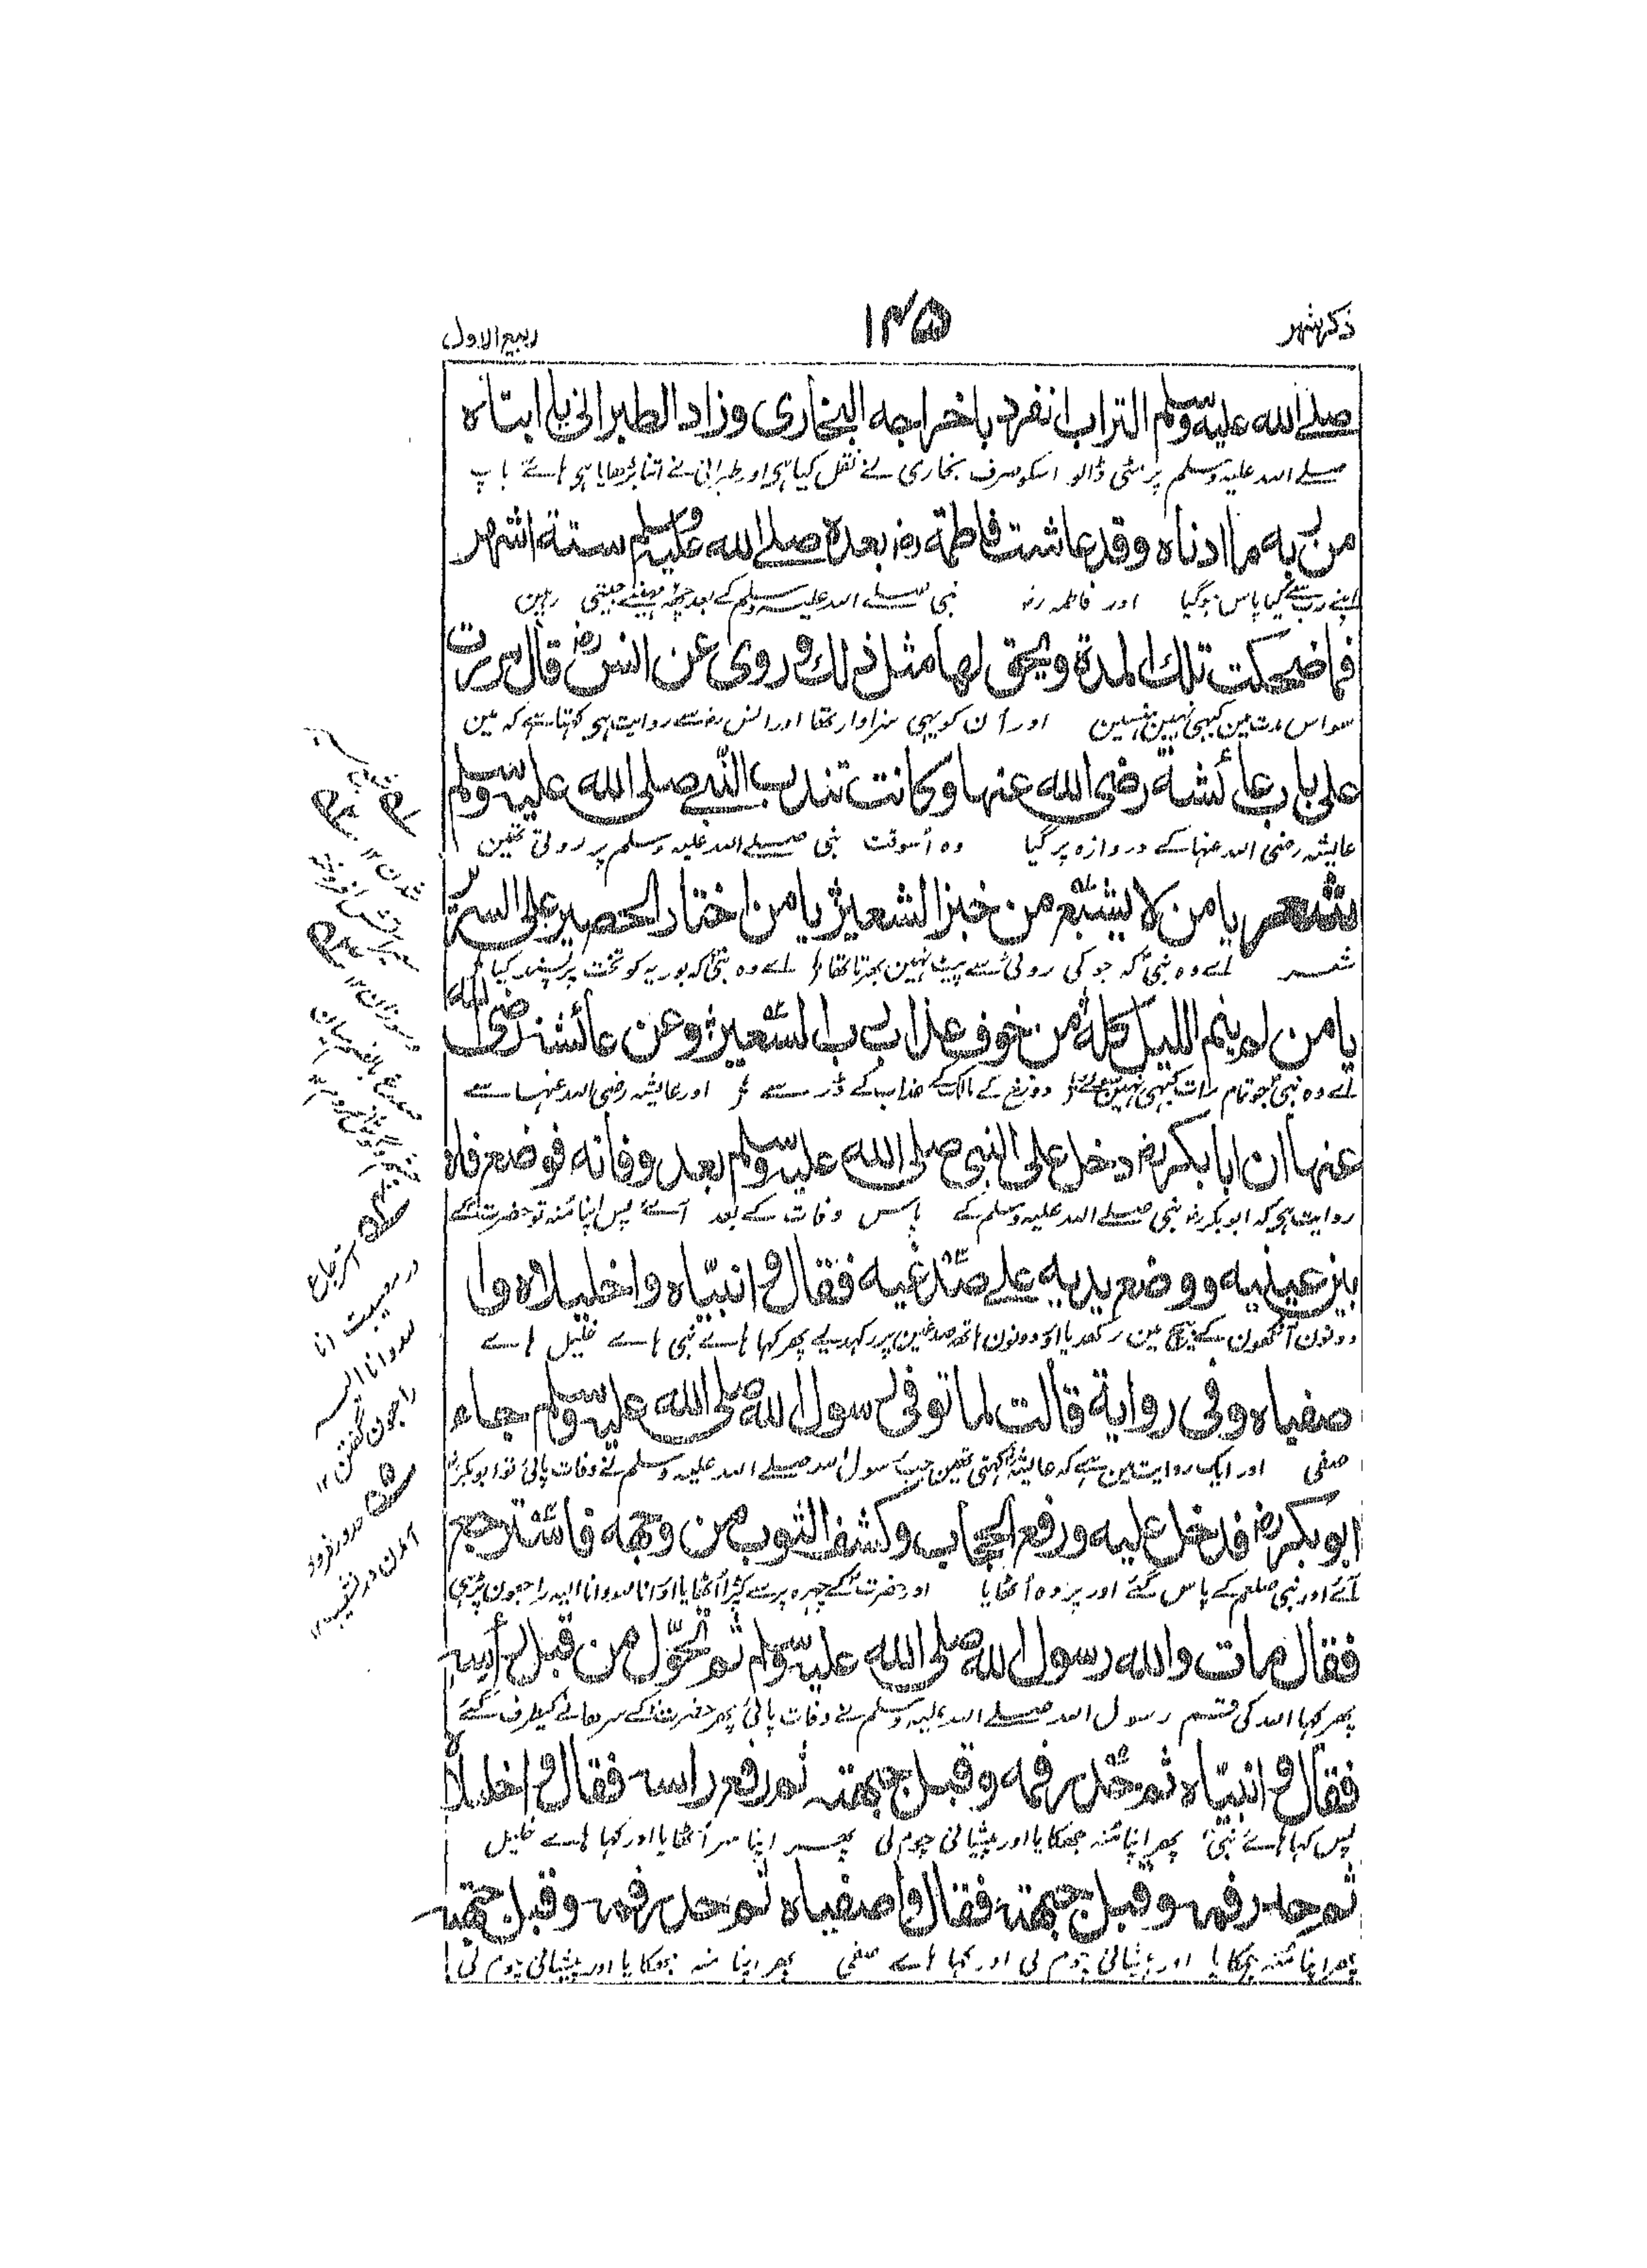 ذکر شہر
۱۴۵
ربیع الاول
صلے الله علیه وسلم التراب انفرد باخراجه البخاری وزاد الطبرانی یا ابتاه
صلے اللہ علیہ وسلم پر مٹی ڈالو اسکو صرف بخاری نے نقل کیا ہی اور طبرانی نے اتنا بڑھایا ہی ہائے باپ
من ربه ما ادناه وقد عاشت فاطمة رض بعده صلے الله علیه وسلم ستة اشهر
اپنے رب سے کیا پاس ہوگیا اور فاطمہ رض نبی صلے اللہ علیہ وسلم کے بعد چھہ مہینے جیتی رہین
فما ضحکت تلك المدة ویحق لها مثل ذلك وروی عن انس رض قال مررت
سو اس مدت مین کبہی نہین ہنسین اور اُن کو یہی سزاوار تھا اور انس رض سے روایت ہی کہتا ہے کہ مین
علی باب عائشة رضی الله عنها وکانت تندب النبی صلی الله علیه وسلم
عایشہ رضی اللہ عنہا کے دروازہ پر گیا وہ اُسوقت نبی صلے اللہ علیہ وسلم پر روتی تھین
شعر یا من لا یشبع من خبز الشعیر یا من اختار الحصیر علی السریر
شعر اے وہ نبی کہ جو کی روٹی سے پیٹ نہین بھرتا تھا اے وہ نبی کہ بوریہ کو تخت پر پسند کیا
یا من لم ینم اللیل کله من خوف عذاب رب السعیر وعن عائشة رضی الله
اے وہ نبی جو تمام رات کبہی نہین سوئے دوزخ کے مالک کے عذاب کے ڈر سے اور عایشہ رضی اللہ عنہا سے
عنها ان ابا بکر رض دخل علی النبی صلی الله علیه وسلم بعد وفاته فوضع فاه
روایت ہی کہ ابوبکر رض نبی صلے اللہ علیہ وسلم کے پاس وفات کے بعد آئے پس اپنا منہ تو حضرت کے
بین عینیه ووضع یدیه علے صدغیه فقال وا نبیّاه وا خلیلاه وا
دونون آنکھون کے بیچ مین رکھدیا اور دونون ہاتھ صدغین پر رکھدیے پھر کہا ہائے نبی ہائے خلیل ہائے
صفیاه وفی روایة قالت لما توفی رسول الله صلی الله علیه وسلم جاء
صفی اور ایک روایت مین ہے کہ عایشہ کہتی تھین جب رسول اللہ صلے اللہ علیہ وسلم نے وفات پائی تو ابوبکر رض
ابو بکر رض فدخل علیه ورفع الحجاب وکشف الثوب من وجهه فاسترجع
آئے اور نبی صلعم کے پاس گئے اور پردہ اُٹھایا اور حضرت کے چہرہ پر سے کپڑا اُٹھایا اور انا للہ وانا الیہ راجعون پڑہی
فقال مات والله رسول الله صلی الله علیه وسلم ثم تحوّل من قبل رأسه
پھر کہا اللہ کی قسم رسول اللہ صلے اللہ علیہ وسلم نے وفات پائی پھر حضرت کے سرھانے کیطرف گئے
فقال وا نبیّاه ثم حدر فمه وقبل جبهته ثم رفع راسه فقال وا خلیلاه
پس کہا ہائے نبی پھر اپنا منہ جھکایا اور پیشانی چوم لی پھر اپنا سر اُٹھایا اور کہا ہائے خلیل
ثم حدر فمه وقبل جبهته فقال وا صفیاه ثم حدر فمه وقبل جبهته
پھر اپنا منہ جھکایا اور پیشانی چوم لی اور کہا ہائے صفی پھر اپنا منہ جھکایا اور پیشانی چوم لی
استرجاع
در مصیبت انا
للہ وانا الیہ
راجعون گفتن ۱۲
حدور فرود
آمدن در نشیب ۱۲